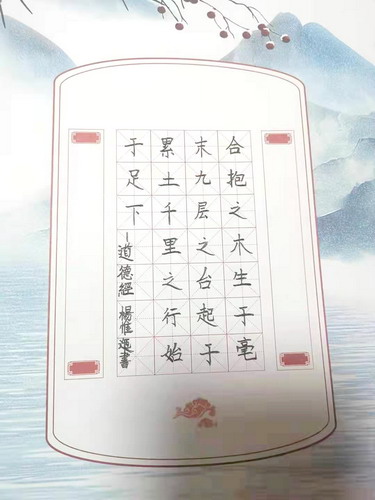 合抱之木生于毫
末九层之台起于
累土千里之行始
于足下
–道德經 楊惟書